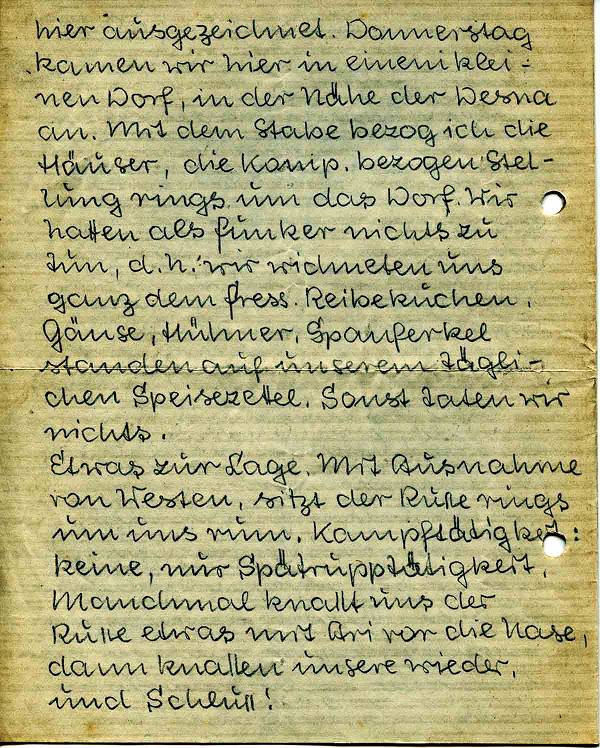 hier ausgezeichnet. Donnerstag
kamen wir hier in einem klei-
nen Dorf, in der Nähe der Desna
an. Mit dem Stabe bezog ich die
Häuser, die Komp. bezogen Stel-
lung rings um das Dorf. Wir
hatten als Funker nichts zu
tun, d.h. wir widmeten uns
ganz dem Fress. Reibekuchen,
Gänse, Hühner, Spanferkel
standen auf unserem tägli-
chen Speisezettel. Sonst taten wir
nichts.
Etwas zur Lage. Mit Ausnahme
von Westen, sitzt der Ruße rings
um uns rum. Kampftätigkeit:
keine, nur Spätrupptätigkeit.
Manchmal knallt uns der
Ruße etwas mit Ari vor die Nase,
dann knallen unsere wieder,
und Schluß!